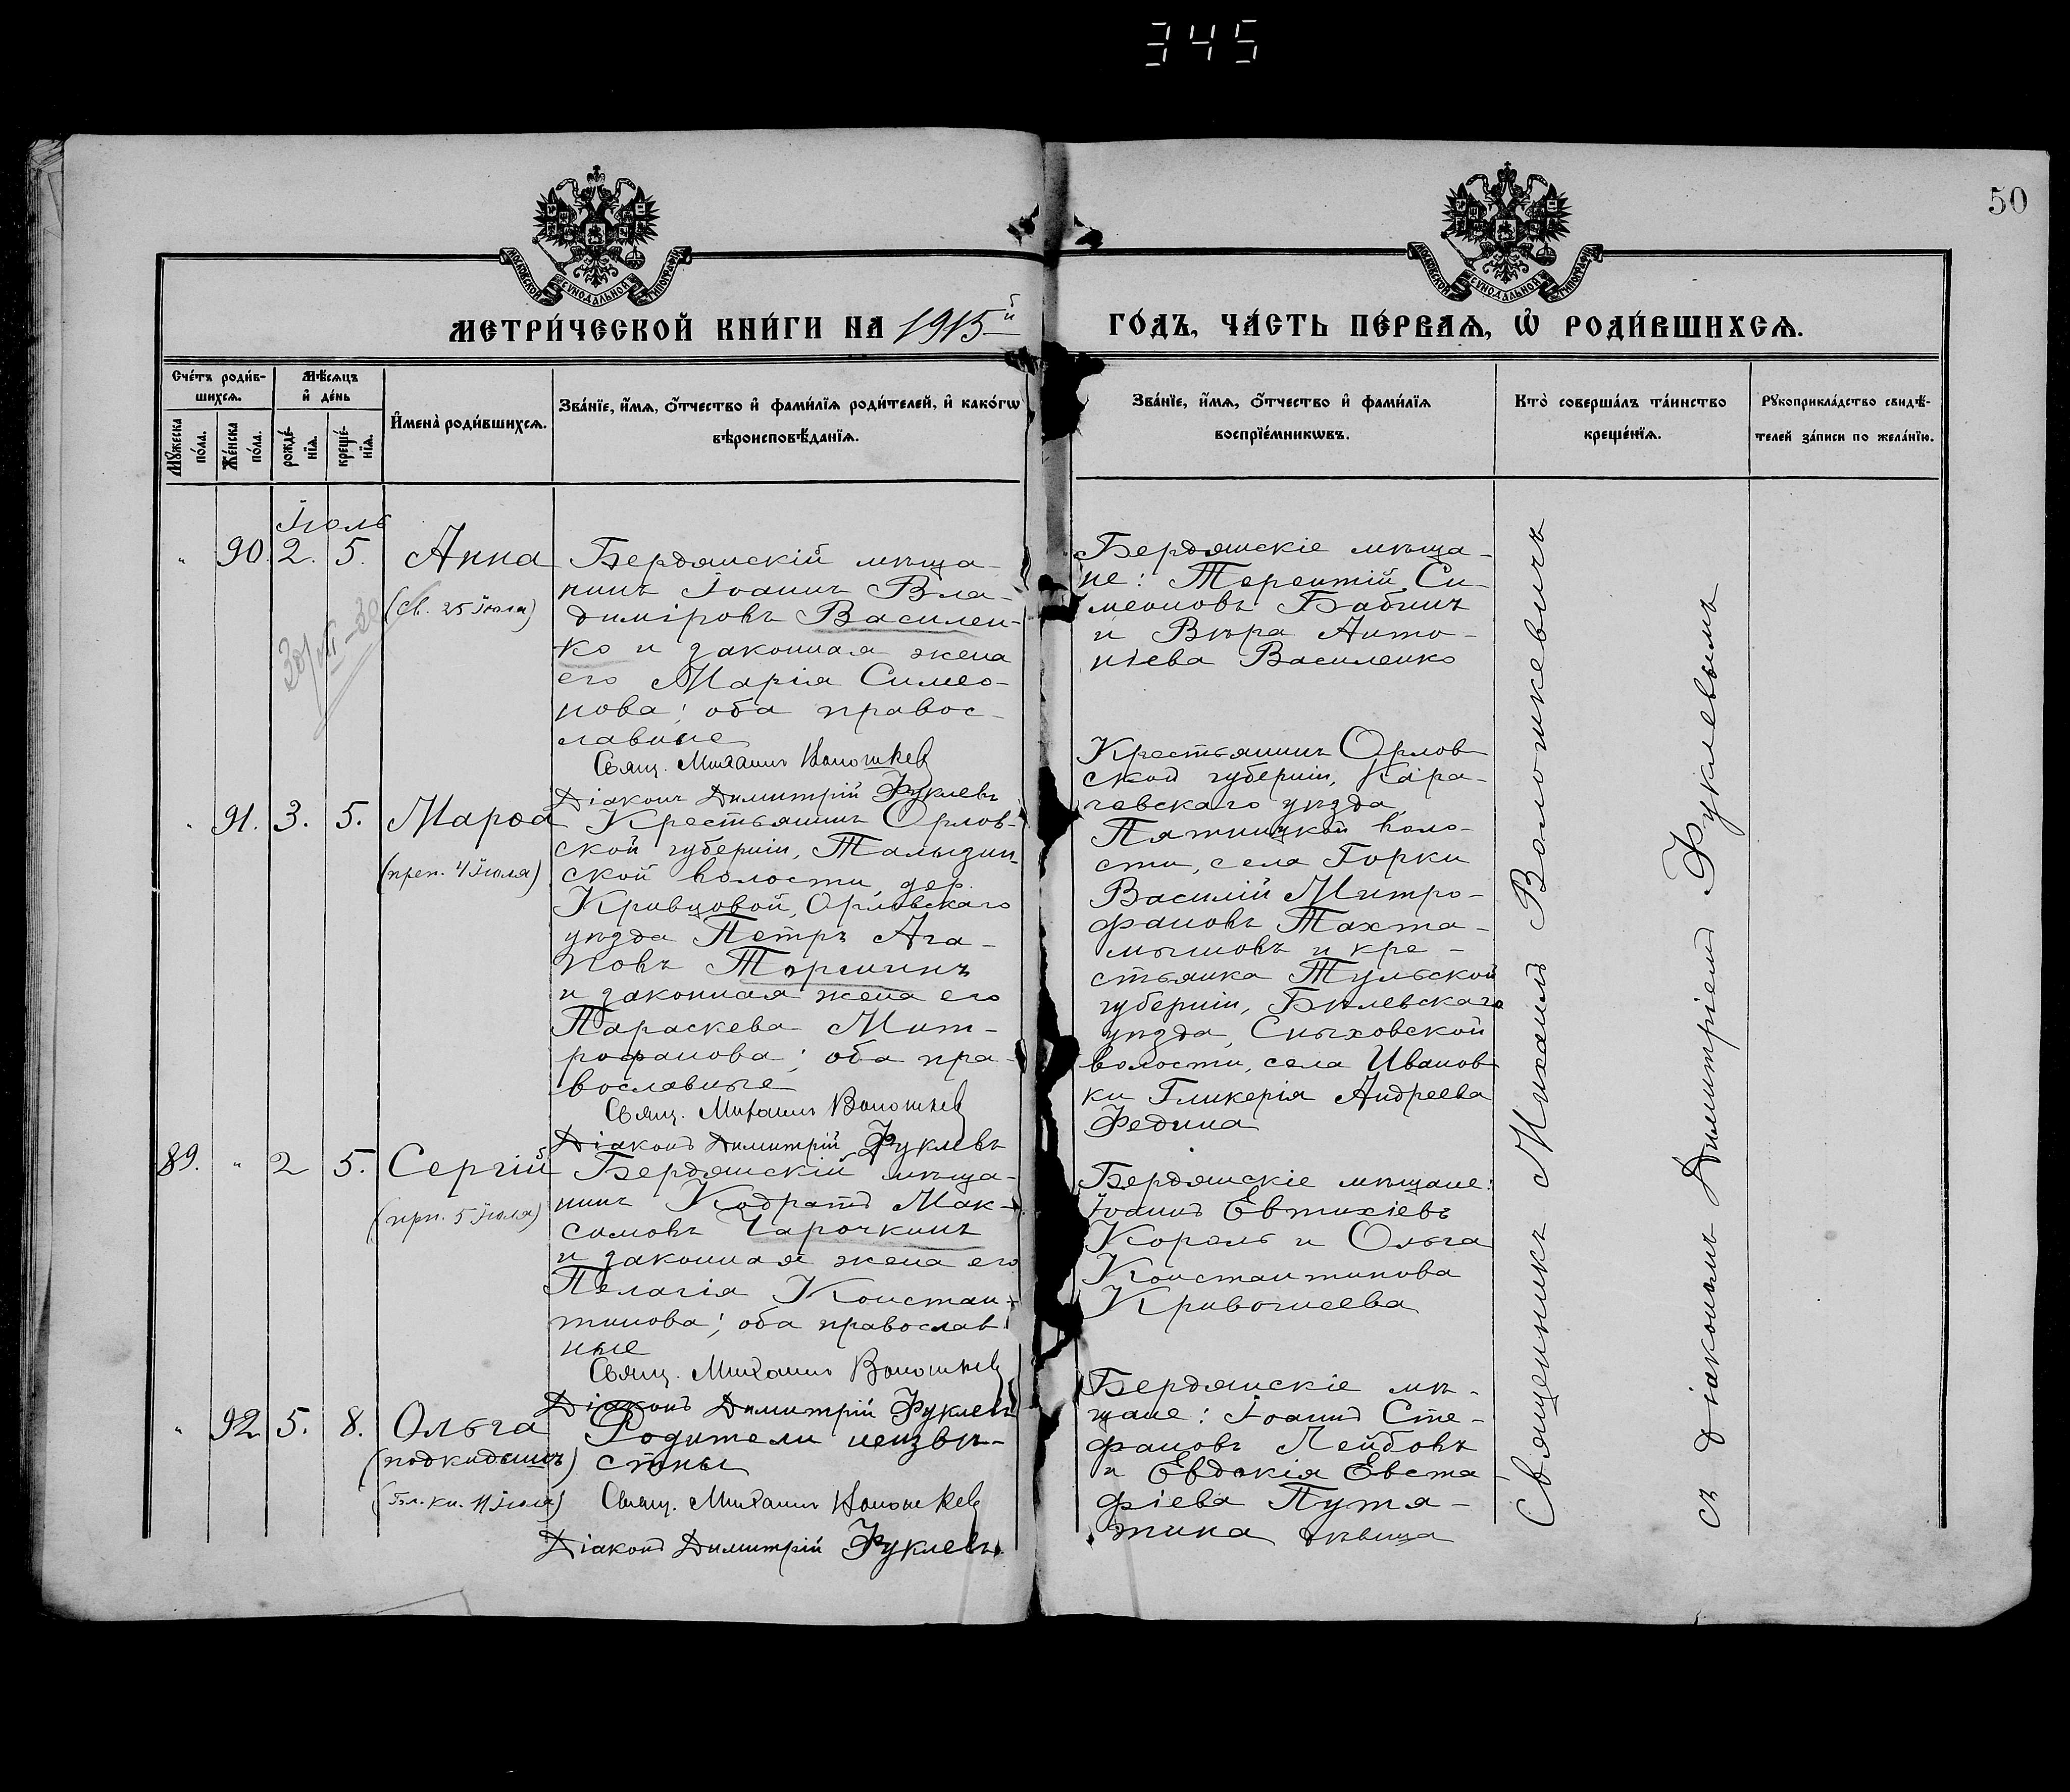 345
50
МОСКОВСКОЙ СѴНОДАЛЬНОЙ ТИПОГРАФІИ
МОСКОВСКОЙ СѴНОДАЛЬНОЙ ТИПОГРАФІИ
МЕТРИ́ЧЕСКОЙ КНИ́ГИ НА 1915й
ГО́ДЪ, ЧА́СТЬ ПЕ́РВАѦ, Ѽ РОДИ́ВШИХСѦ.
Сче́тъ роди́в-
шихсѧ.
Мꙋ́жеска
по́ла.
Же́нска
по́ла.
Мѣ́сѧцъ
и҆ де́нь
рожде́-
нїѧ.
креще́-
нїѧ.
И҆мена̀ роди́вшихсѧ.
Зва́нїе, и҆́мѧ, ѻ҆́тчество и҆ фами́лїѧ роди́телей, и҆ како́гѡ
вѣроисповѣ́данїѧ.
Зва́нїе, и҆́мѧ, ѻ҆́тчество и҆ фами́лїѧ
воспрїе́мникѡвъ.
Кто̀ соверша́лъ та́инство
креще́нїѧ.
Рꙋкоприкла́дство свидѣ́-
телей за́писи по жела́нїю.
Іюль
" 90. 2. 5. Анна
(св. 25 Іюля)
Бердянскій мѣща-
нинъ Іоаннъ Вла-
диміровъ Василен-
ко и законная жена
его Марія Симео-
нова; оба правос-
лавные
Свящ. Михаилъ Волошкев
Діаконъ Димитрій Фуклевъ
Бердянскіе мѣща-
не: Терентій Си-
меоновъ Бабинъ
и Вѣра Анто-
ніева Василенко
" 91. 3. 5. Марѳа
(преп. 4 Іюля)
Крестьянинъ Орлов-
ской губерніи, Талызин-
ской волости, дер.
Кривцовой, Орловскаго
уѣзда Петръ Ага-
повъ Торшинъ
и законная жена его
Параскева Мит-
рофанова; оба пра-
вославные
Свящ. Михаилъ Волошкев
Діаконъ Димитрій Фуклевъ
Крестьянинъ Орлов-
ской губерніи, Кара-
чевскаго уѣзда,
Пятницкой воло-
сти, села Горки
Василій Митро-
фановъ Тахта-
мышовъ и кре-
стьянка Тульской
губерніи, Бѣлевскаго
уѣзда, Сныховской
волости, села Иванов-
ки Гликерія Андреева
Федина
89. " 2 5. Сергій
(прп. 5 Іюля)
Бердянскій мѣща-
нинъ Кодратъ Мак-
симовъ Чарочкинъ
и законная жена его
Пелагія Констан-
тинова; оба православ-
ные
Свящ. Михаилъ Волошкев
Діаконъ Димитрій Фуклевъ
Бердянскіе мѣщане:
Іоаннъ Евтихіевъ
Король и Ольга
Константинова
Кривошеева
" 92 5. 8. Ольга
(подкидышъ)
(Бл. кн. 11 Іюля)
Родители неизвѣ-
стны
Свящ. Михаилъ Волошкев
Діаконъ Димитрій Фуклевъ
Бердянскіе мѣ-
щане: Іоаннъ Сте-
фановъ Лейбовъ
и Евдокія Евста-
фіева Путя-
тина дѣвица
Священникъ Михаилъ Волошкевичъ
съ діакономъ Димитріемъ Фуклевымъ